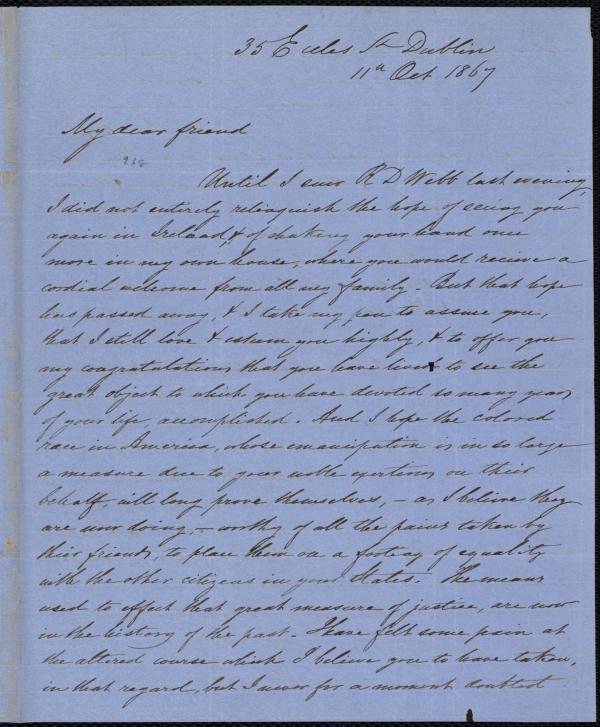 35 Eccles St Dublin
11th Oct 1867
My dear friend
Until I saw R D Webb last evening,
I did not entirely relinquish the hope of seeing you
again in Ireland, & of shaking your hand once
more in my own house, where you would receive a
cordial welcome from all my family. But that hope
has passed away, & I take my pen to assure you,
that I still love & esteem you highly, & to offer you
my congratulations that you have lived to see the
great object to which you have devoted so many years
of your life, accomplished. And I hope the colored
race in America, whose emancipation is in so large
a measure due to your noble exertions on their
behalf, will long prove themselves, - as I believe they
are now doing, - worthy of all the pains taken by
their friends, to place them on a footing of equality
with the other citizens in your States. The means
used to effect that great measure of justice, are now
in the history of the past. I have felt some pain at
the altered course which I believe you to have taken,
in that regard, but I never for a moment doubted